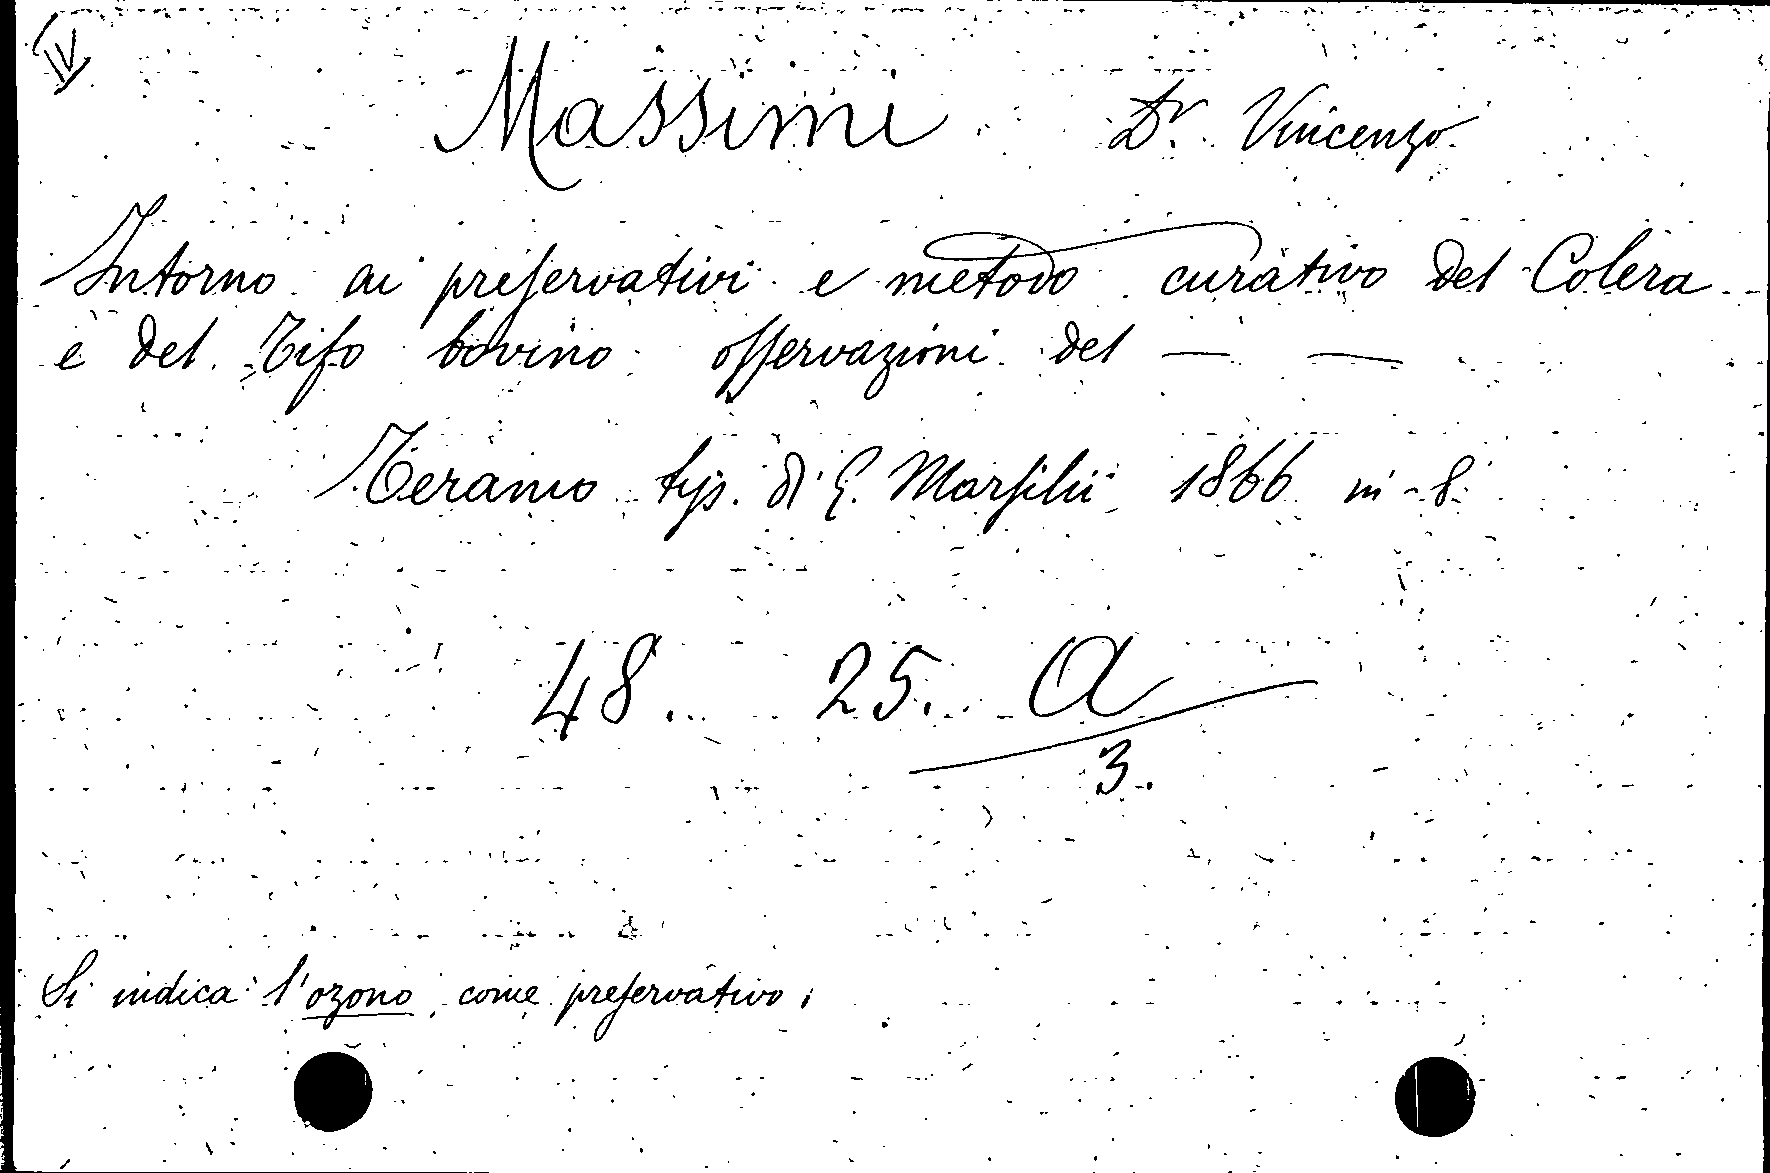 IV
Massimi Dr. Vincenzo
Intorno ai preservativi e metodo curativo del Colèra
e del Tifo bovino osservazioni del — —
Teramo tip. di Q. Marsilii 1866 in-8.
48. 25. A
3.
Si indica l'ozono come preservativo.